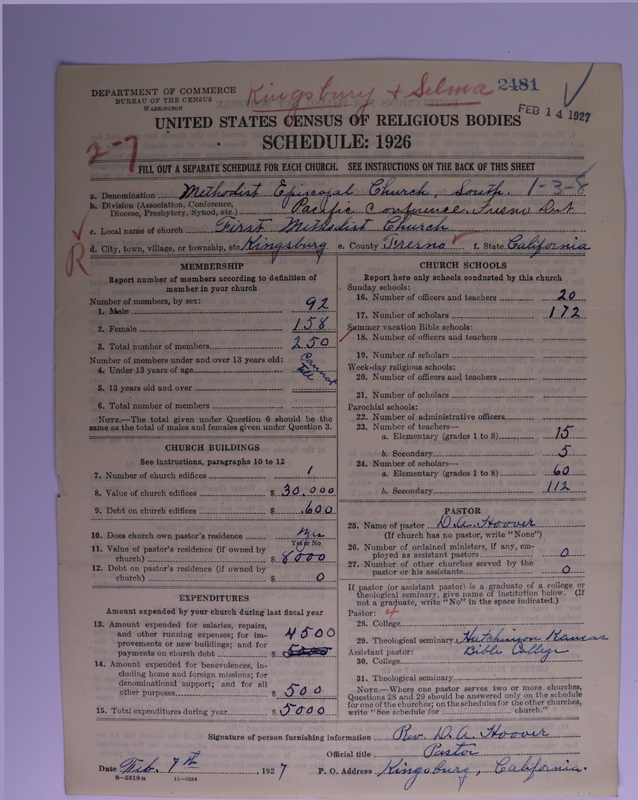 DEPARTMENT OF COMMERCE
BUREAU OF THE CENSUS
WASHINGTON
Kingsbury + Selma
2481
FEB 14 1927
UNITED STATES CENSUS OF RELIGIOUS BODIES
SCHEDULE: 1926
2-7
FILL OUT A SEPARATE SCHEDULE FOR EACH CHURCH. SEE INSTRUCTIONS ON THE BACK OF THIS SHEET
a. Denomination Methodist Episcopal Church, South. 1-3-8
b. Division (Association, Conference, Diocese, Presbytery, Synod, etc.) Pacific Conference Fresno Dist
c. Local name of church First Methodist Church
R
d. City, town, village, or township, etc. Kingsburg e. County Fresno f. State California
MEMBERSHIP
Report number of members according to definition of
member in your church
Number of members, by sex:
1. Male 92
2. Female 158
3. Total number of members 250
Number of members under and over 13 years old:
4. Under 13 years of age Cannot tell
5. 13 years old and over
6. Total number of members
NOTE.—The total given under Question 6 should be the
same as the total of males and females given under Question 3.
CHURCH BUILDINGS
See instructions, paragraphs 10 to 12
7. Number of church edifices 1
8. Value of church edifices $ 30,000
9. Debt on church edifices $ 600
10. Does church own pastor's residence? Yes
Yes or No
11. Value of pastor's residence (if owned by
church) $ 8000
12. Debt on pastor's residence (if owned by
church) $ 0
EXPENDITURES
Amount expended by your church during last fiscal year
13. Amount expended for salaries, repairs,
and other running expenses; for im-
provements or new buildings; and for
payments on church debt $ 4500
14. Amount expended for benevolences, in-
cluding home and foreign missions; for
denominational support; and for all
other purposes $ 500
15. Total expenditures during year $ 5000
CHURCH SCHOOLS
Report here only schools conducted by this church
Sunday schools:
16. Number of officers and teachers 20
17. Number of scholars 172
Summer vacation Bible schools:
18. Number of officers and teachers
19. Number of scholars
Week-day religious schools:
20. Number of officers and teachers
21. Number of scholars
Parochial schools:
22. Number of administrative officers
23. Number of teachers—
a. Elementary (grades 1 to 8) 15
b. Secondary 5
24. Number of scholars—
a. Elementary (grades 1 to 8) 60
b. Secondary 112
PASTOR
25. Name of pastor D. A. Hoover
(If church has no pastor, write "None")
26. Number of ordained ministers, if any, em-
ployed as assistant pastors 0
27. Number of other churches served by the
pastor or his assistants 0
If pastor (or assistant pastor) is a graduate of a college or
theological seminary, give name of institution below. (If
not a graduate, write "No" in the space indicated.)
Pastor: 4
28. College
29. Theological seminary Hutchinson Kansas
Assistant pastor: Bible College
30. College
31. Theological seminary
NOTE.—Where one pastor serves two or more churches,
Questions 28 and 29 should be answered only on the schedule
for one of the churches; on the schedules for the other churches,
write "See schedule for church."
Signature of person furnishing information Rev. D. A. Hoover
Official title Pastor
Date Feb. 7th, 1927 P. O. Address Kingsburg, California.
8-5518a 11-3564